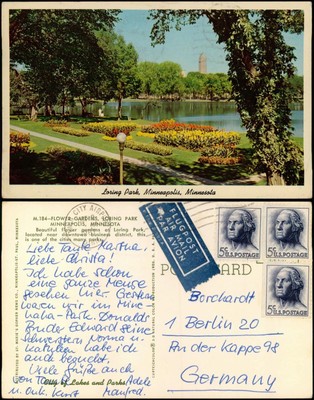 Loring Park, Minneapolis, Minnesota
M.184—FLOWER GARDENS, LORING PARK
MINNEAPOLIS, MINNESOTA
Beautiful flower gardens at Loring Park,
located near downtown business district, this
is one of the cities many parks.
Liebe Tante Martha,
liebe Christa!
Ich habe schon
eine ganze Menge
gesehen hier. Gestern
waren wir im Minne-
haha-Park. Donalds
Bruder Edward seine
Schwestern Norma u.
Kathleen habe ich
auch besucht.
Viele Grüße auch
von Tante Adele
u. Onk. Kurt Manfred.
City of Lakes and Parks
MIT LUFTPOST
PAR AVION
POST CARD
5c U.S. POSTAGE
5c U.S. POSTAGE
5c U.S. POSTAGE
Borchardt
1 Berlin 20
An der Kappe 98
Germany